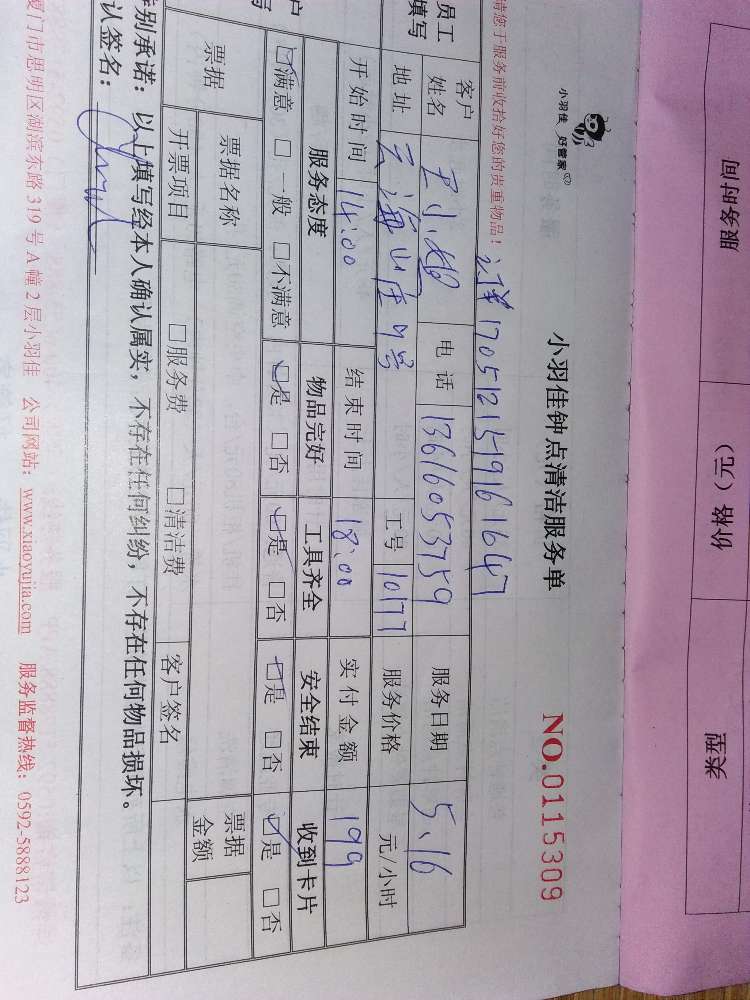 服务时间 价格（元） 类型
小羽佳 好管家
小羽佳钟点清洁服务单 NO.0115309
请您于服务前收拾好您的贵重物品！ 1705121519161647
员工 填写
客户姓名 王小姐 电话 13616053759 服务日期 5.16
地址 云海山庄 号 工号 10177 服务价格 元/小时
开始时间 14:00 结束时间 18:00 实付金额 199
服务态度 物品完好 工具齐全 安全结束 收到卡片
☑满意 □一般 □不满意 ☑是 □否 ☑是 □否 ☑是 □否 ☑是 □否
票据 票据名称 票据金额
开票项目 □服务费 □清洁费 客户签名
别承诺：以上填写经本人确认属实，不存在任何纠纷，不存在任何物品损坏。
认签名：
厦门市思明区湖滨东路 319 号 A 幢 2 层小羽佳 公司网站：www.xiaoyujia.com 服务监督热线：0592-5888123